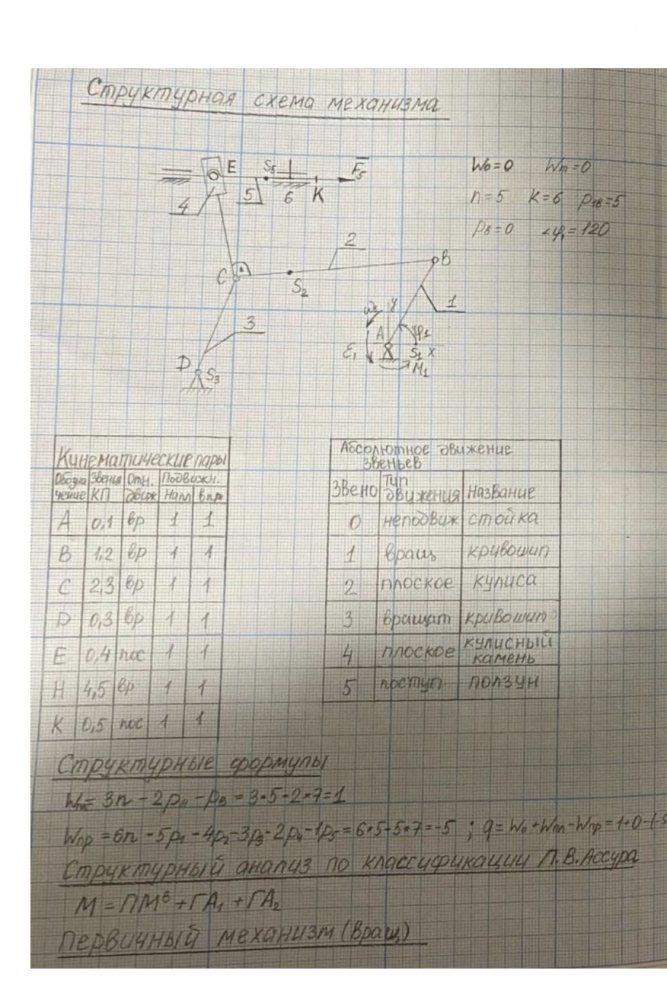 Структурная схема механизма
E S₅ F̅₅
4 5 6 K
W₀=0 Wm=0
n=5 k=6 p₁в=5
pв=0 ∠φ₁=120
2
B
C S₂
1
3 y
A φ₁
D ε₁ S₁ x
S₃ M₁
Кинематические пары
Обозначение Звенья КП Отн. движ Подвижн. напл в пр.
A 0,1 вр 1 1
B 1,2 вр 1 1
C 2,3 вр 1 1
D 0,3 вр 1 1
E 0,4 пос 1 1
H 4,5 вр 1 1
K 0,5 пос 1 1
Абсолютное движение звеньев
Звено Тип движения название
0 неподвиж стойка
1 вращ кривошип
2 плоское кулиса
3 вращат кривошип
4 плоское кулисный камень
5 поступ ползун
Структурные формулы
= 3n - 2pн - pв = 3·5 - 2·7 = 1
Wпр = 6n - 5p₁ - 4p₂ - 3p₃ - 2p₄ - 1p₅ = 6·5 - 5·7 = -5 ; q = W₀ + Wпл - Wпр = 1+0-(-5
Структурный анализ по классификации Л.В.Ассура
М = ПМᵇ + ГА₁ + ГА₂
Первичный механизм (Вращ)